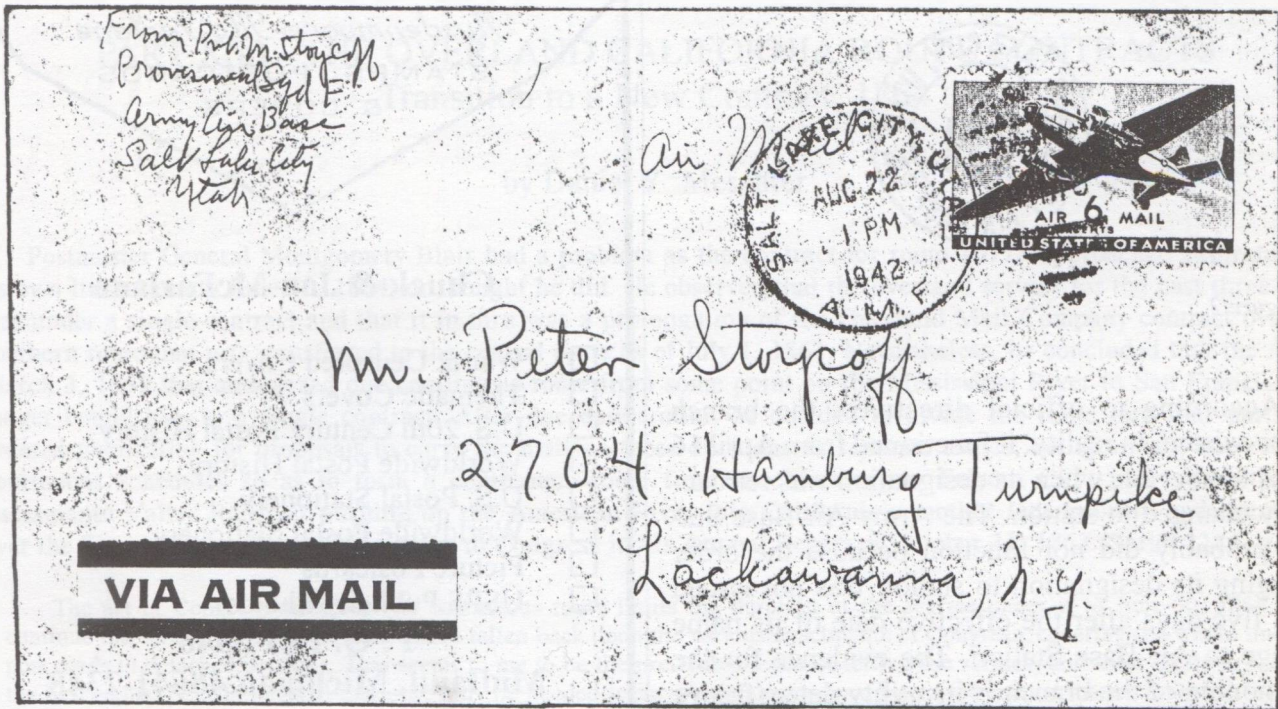 From Pvt. M. Stoycoff
Provisional Sqd F.
Army Air Base
Salt Lake City
Utah
Air Mail
SALT LAKE CITY
AUG 22
1 PM
1942
A.M.F.
AIR 6 MAIL
CENTS
UNITED STATES OF AMERICA
Mr. Peter Stoycoff
2704 Hamburg Turnpike
Lackawanna, N.Y.
VIA AIR MAIL